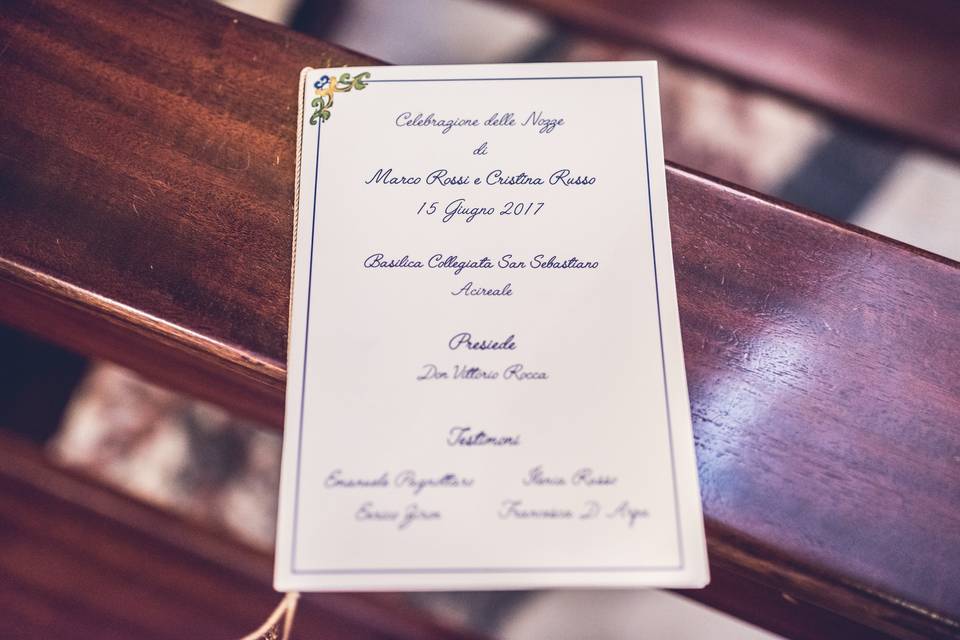 Celebrazione delle Nozze
di
Marco Rossi e Cristina Russo
15 Giugno 2017
Basilica Collegiata San Sebastiano
Acireale
Presiede
Don Vittorio Rocca
Testimoni
Emanuele Ilenia Russo
Enrico Francesca D'